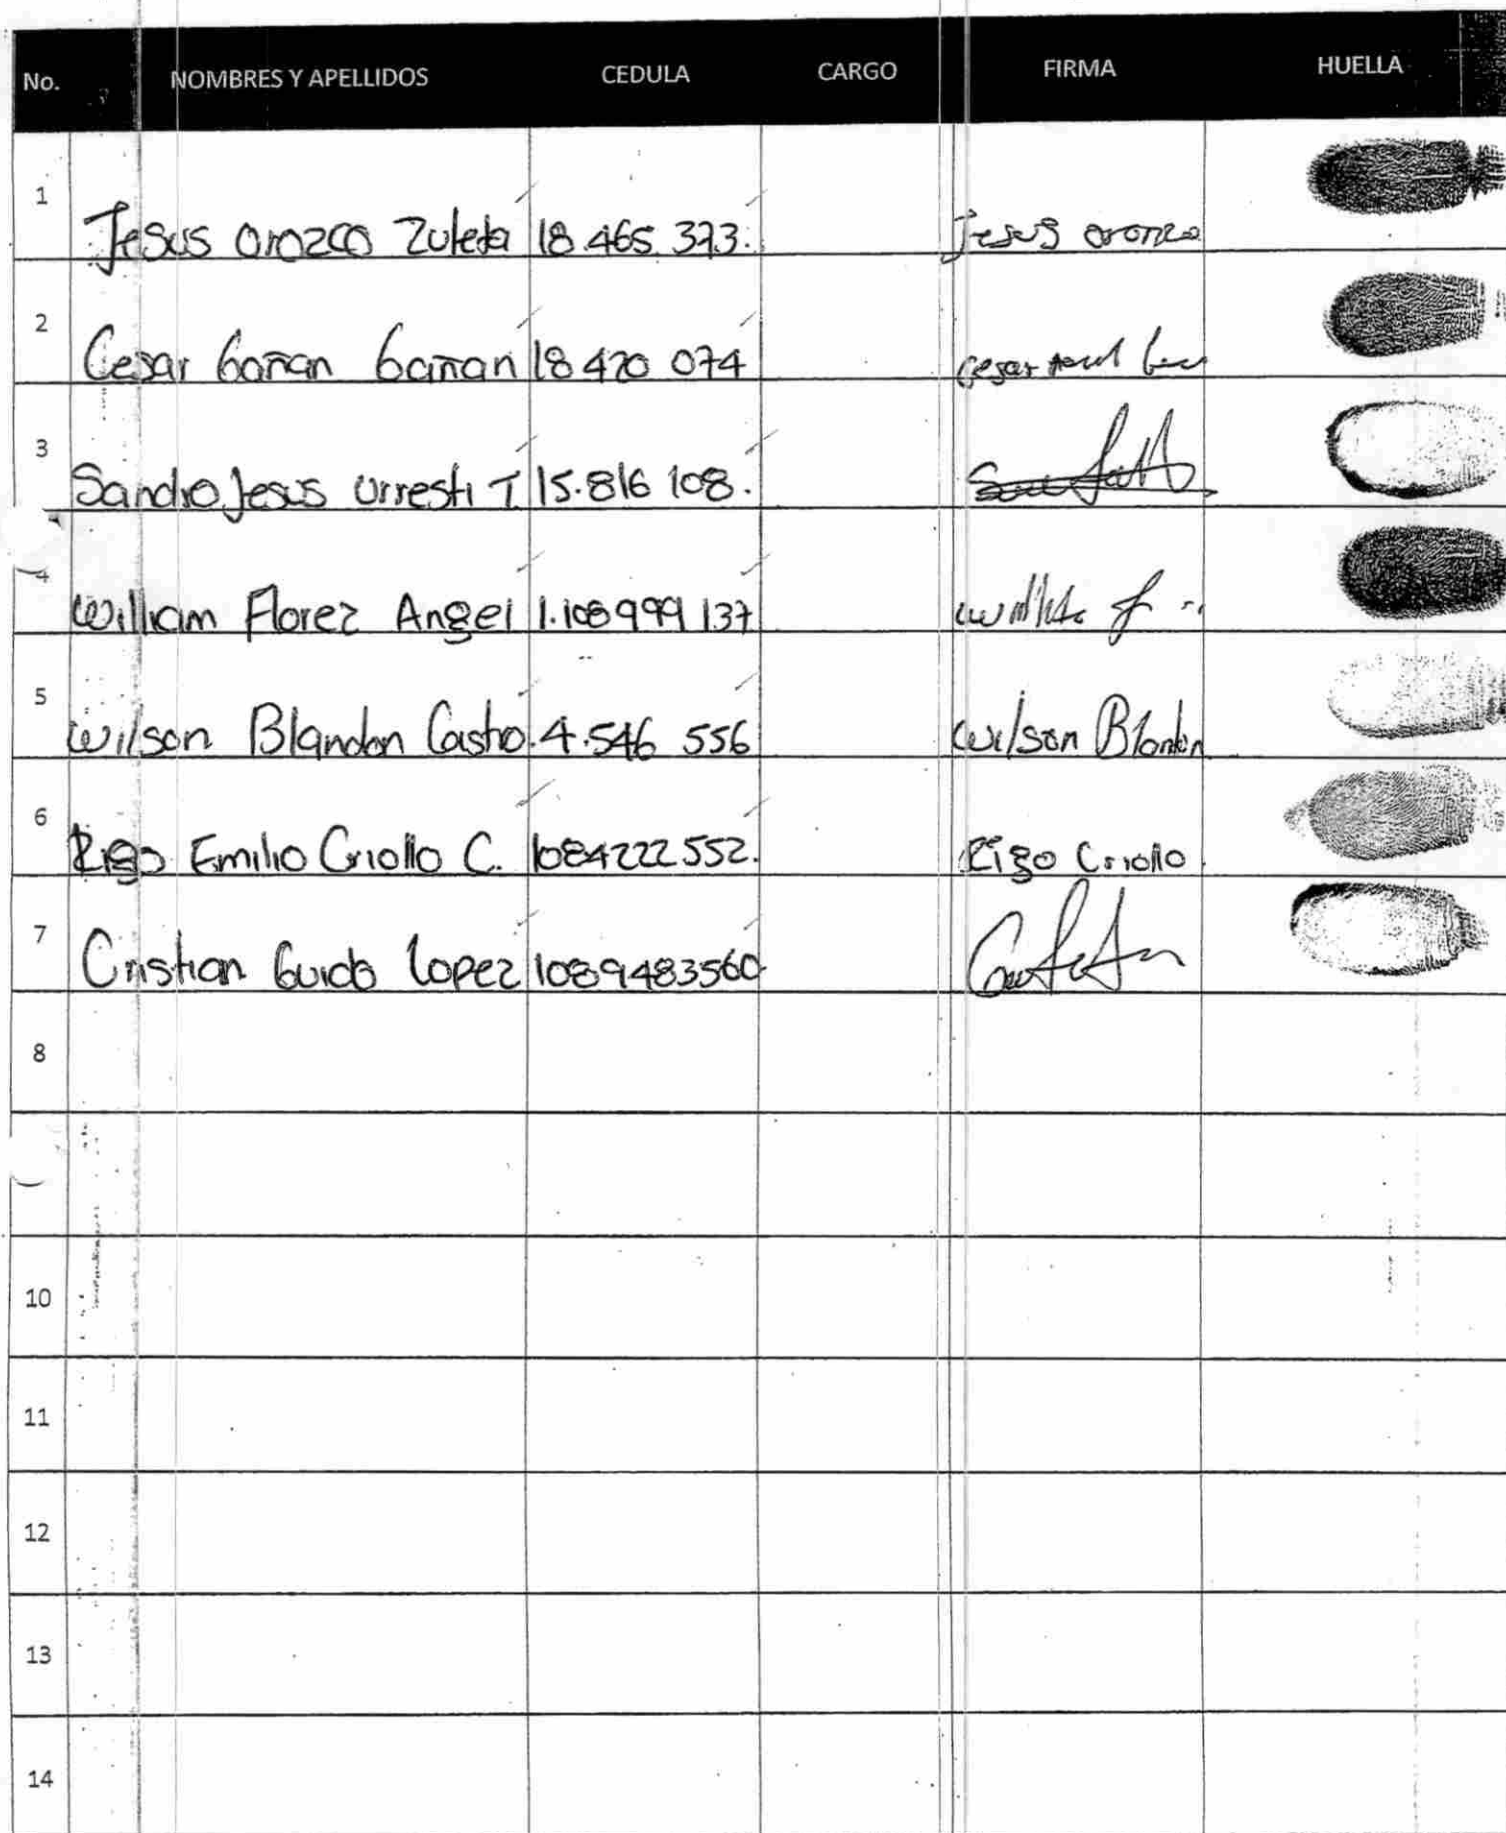 No. NOMBRES Y APELLIDOS CEDULA CARGO FIRMA HUELLA
1 Jesus Orozco Zuleta 18.465.373. Jesus Oronzo
2 Cesar Gañan Gañan 18 420 074 Cesar
3 Sandro Jesus Urresti T. 15.816 108.
4 William Florez Angel 1.108 999 137
5 Wilson Blandon Castro. 4.546 556 Wilson Blandon
6 Rigo Emilio Criollo C. 1084222552. Rigo Criollo
7 Cristian Guido Lopez 1089483560.
8
10
11
12
13
14